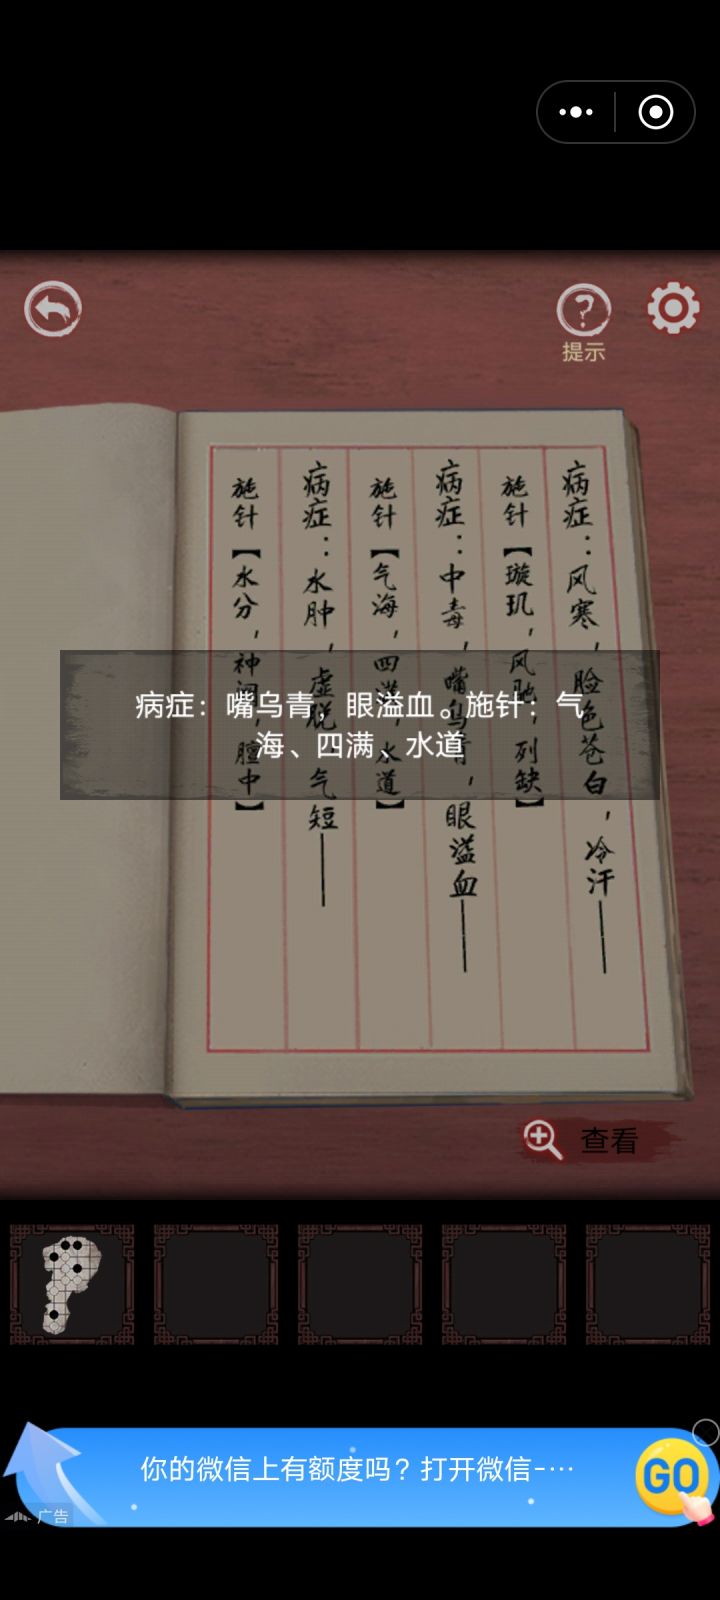 提示
病症：风寒，脸色苍白，冷汗——
施针【璇玑，风驰，列缺】
病症：中毒，嘴乌青，眼溢血——
施针【气海，四满，水道】
病症：水肿，虚脱，气短——
施针【水分，神阙，膻中】
病症：嘴乌青，眼溢血。施针：气
海、四满、水道
查看
你的微信上有额度吗？打开微信-…
GO
广告